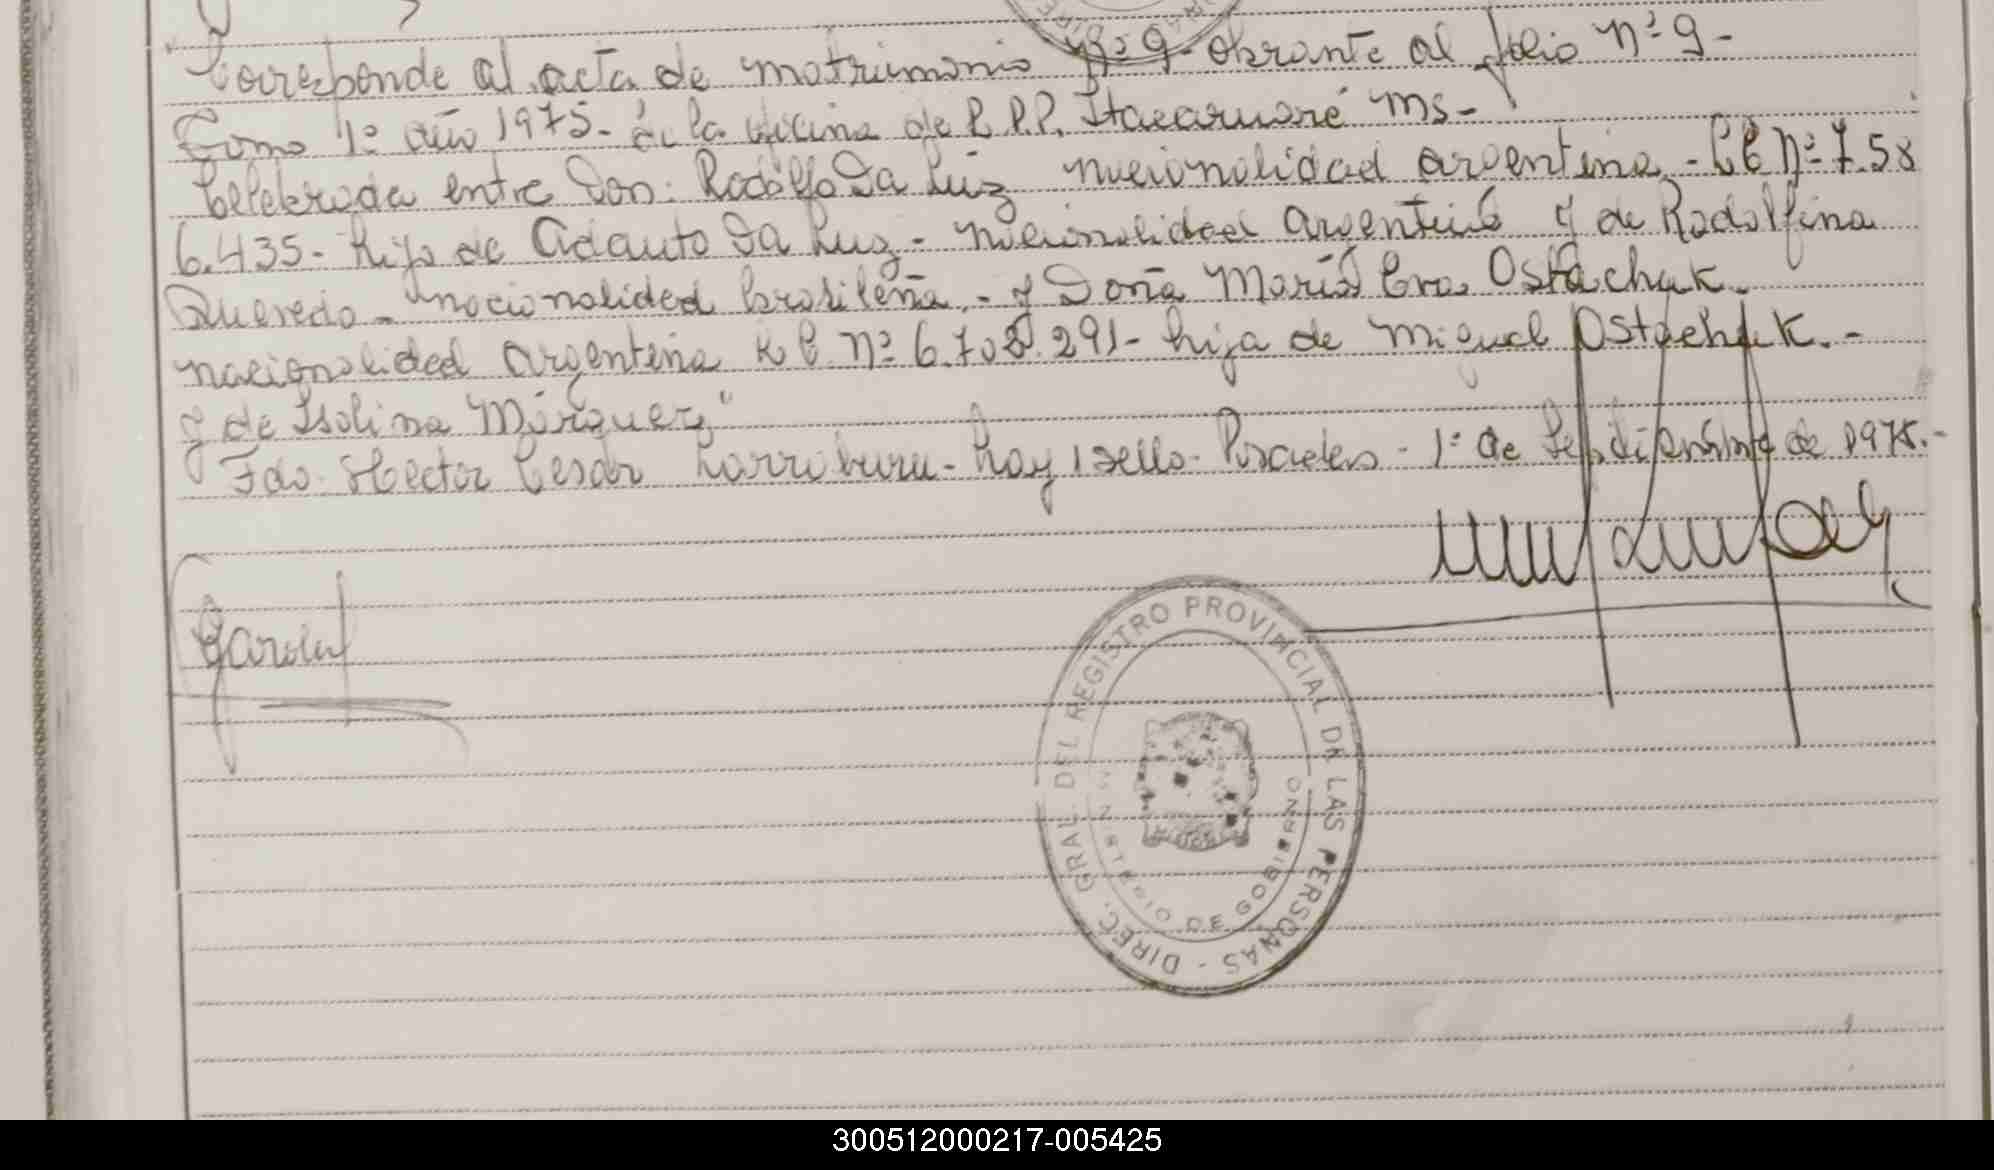 Corresponde al acta de matrimonio Nº 9 - obrante al folio nº 9 -
Tomo 1º año 1975 - de la oficina de R.P.P. Itacaruaré Ms -
Celebrada entre Don: Rodolfo Da Luz nacionalidad argentina - C.I. Nº 7.58
6.435 - hijo de Adauto Da Luz - nacionalidad argentina y de Rodolfina
Quevedo - nacionalidad brasileña, - y Doña María Eva Ostachuk -
nacionalidad argentina L.C. nº 6.708.291 - hija de Miguel Ostachuk. -
y de Isolina Márquez"
Fdo. Hector Cesar Larraburu - hay 1 sello - Posadas - 1º de Septiembre de 1975. -
DIREC. GRAL. DEL REGISTRO PROVINCIAL DE LAS PERSONAS -
MINISTERIO DE GOBIERNO
300512000217-005425